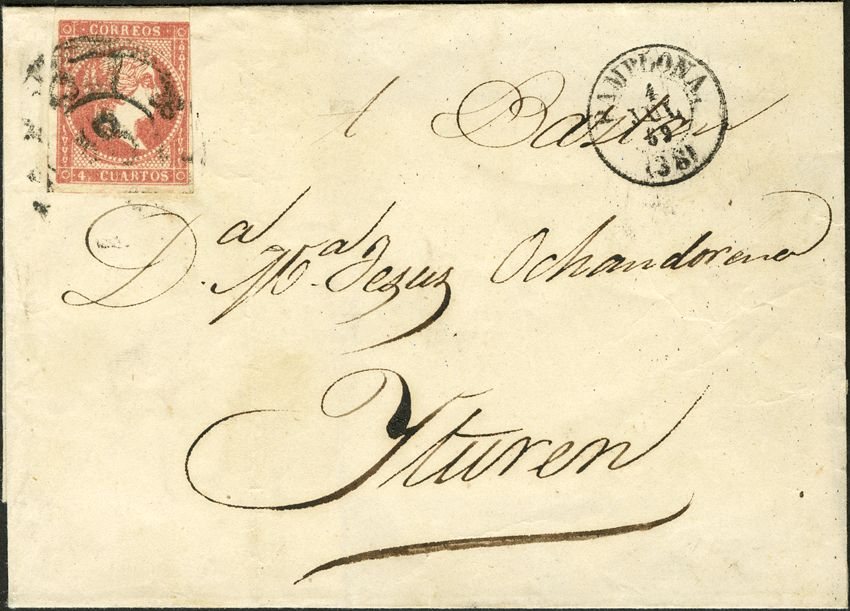 CORREOS
4. CUARTOS
PAMPLONA.
1
JUL
59
(38)
Bastan
D.ª M.ª Jesus Ochandorena
Yturen